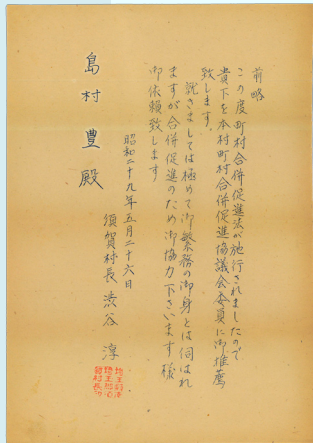 前略
この度町村合併促進法が施行されましたので
貴下を本村町村合併促進協議会委員に御推薦
致します。
就きましては極めて御繁務の御身とは伺はれ
ますが合併促進のため御協力下さいます様
御依頼致します
昭和二十九年五月二十六日
須賀村長 渋谷 淳
島村 豊 殿